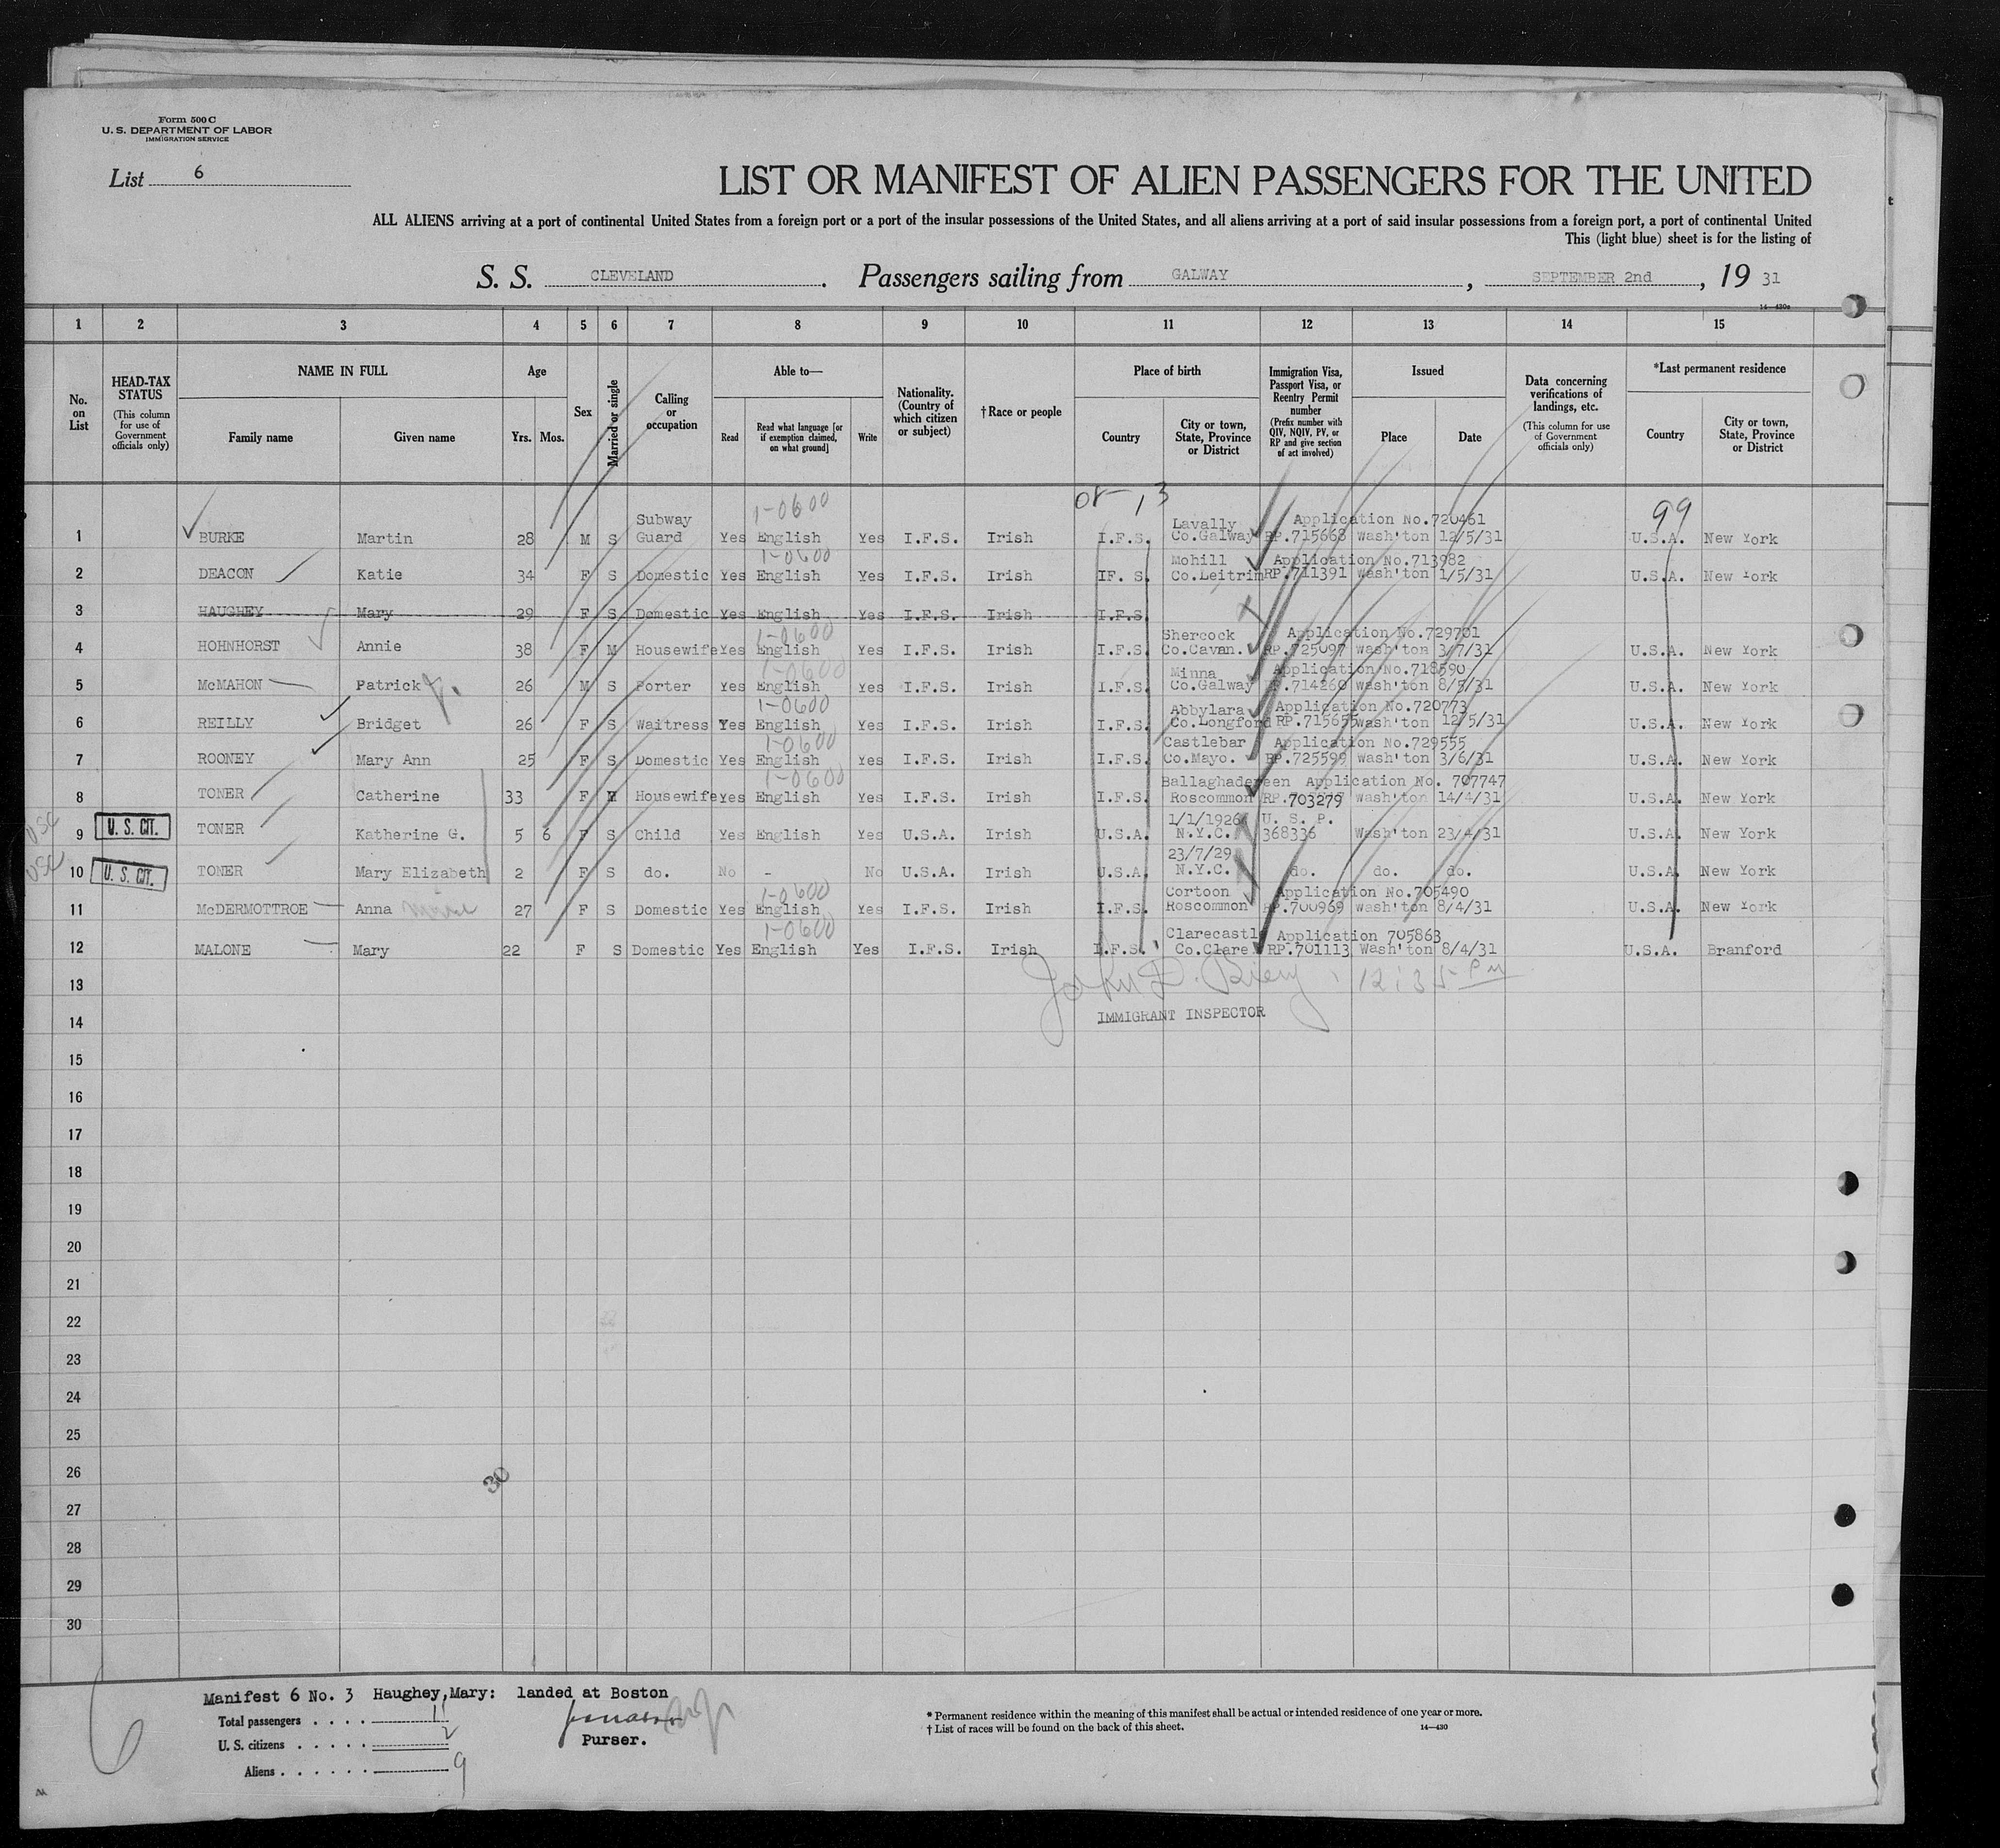 Form 500 C
U. S. DEPARTMENT OF LABOR
IMMIGRATION SERVICE
List 6
LIST OR MANIFEST OF ALIEN PASSENGERS FOR THE UNITED
ALL ALIENS arriving at a port of continental United States from a foreign port or a port of the insular possessions of the United States, and all aliens arriving at a port of said insular possessions from a foreign port, a port of continental United
This (light blue) sheet is for the listing of
S. S. CLEVELAND. Passengers sailing from GALWAY, SEPTEMBER 2nd, 19 31
1 2 3 4 5 6 7 8 9 10 11 12 13 14 15
No. on List
HEAD-TAX STATUS
(This column for use of Government officials only)
NAME IN FULL
Family name
Given name
Age
Yrs.
Mos.
Sex
Married or single
Calling or occupation
Able to—
Read
Read what language [or if exemption claimed, on what ground]
Write
Nationality. (Country of which citizen or subject)
†Race or people
Place of birth
Country
City or town, State, Province or District
Immigration Visa, Passport Visa, or Reentry Permit number
(Prefix number with QIV, NQIV, PV, or RP and give section of act involved)
Issued
Place
Date
Data concerning verifications of landings, etc.
(This column for use of Government officials only)
*Last permanent residence
Country
City or town, State, Province or District
99
1 BURKE Martin 28 M S Subway Guard Yes 1-0600 English Yes I.F.S. Irish I.F.S. Lavally Co.Galway Application No.720461 RP.715668 Wash'ton 12/5/31 U.S.A. New York
2 DEACON Katie 34 F S Domestic Yes 1-0600 English Yes I.F.S. Irish IF. S. Mohill Co.Leitrim Application No.713982 RP.711391 Wash'ton 1/5/31 U.S.A. New York
3 HAUGHEY Mary 29 F S Domestic Yes English Yes I.F.S. Irish I.F.S.
4 HOHNHORST Annie 38 F M Housewife Yes 1-0600 English Yes I.F.S. Irish I.F.S. Shercock Co.Cavan. Application No.729701 RP.725097 Wash'ton 3/7/31 U.S.A. New York
5 McMAHON Patrick J. 26 M S Porter Yes 1-0600 English Yes I.F.S. Irish I.F.S. Minna Co.Galway Application No.718590 RP.714260 Wash'ton 8/5/31 U.S.A. New York
6 REILLY Bridget 26 F S Waitress Yes 1-0600 English Yes I.F.S. Irish I.F.S. Abbylara Co.Longford Application No.720773 RP.715655 Wash'ton 12/5/31 U.S.A. New York
7 ROONEY Mary Ann 25 F S Domestic Yes 1-0600 English Yes I.F.S. Irish I.F.S. Castlebar Co.Mayo. Application No.729555 RP.725599 Wash'ton 3/6/31 U.S.A. New York
8 TONER Catherine 33 F M Housewife Yes 1-0600 English Yes I.F.S. Irish I.F.S. Ballaghadereen Roscommon Application No. 707747 RP.703279 Wash'ton 14/4/31 U.S.A. New York
USC 9 U. S. CIT. TONER Katherine G. 5 6 F S Child Yes English Yes U.S.A. Irish U.S.A. 1/1/1926 N.Y.C. U. S. P. 368336 Wash'ton 23/4/31 U.S.A. New York
USC 10 U. S. CIT. TONER Mary Elizabeth 2 F S do. No - No U.S.A. Irish U.S.A. 23/7/29 N.Y.C. do. do. do. U.S.A. New York
11 McDERMOTTROE Anna Marie 27 F S Domestic Yes 1-0600 English Yes I.F.S. Irish I.F.S. Cortoon Roscommon Application No.705490 RP.700969 Wash'ton 8/4/31 U.S.A. New York
12 MALONE Mary 22 F S Domestic Yes 1-0600 English Yes I.F.S. Irish I.F.S. Clarecastle Co.Clare Application 705863 RP.701113 Wash'ton 8/4/31 U.S.A. Branford
13 12:35 PM
14 IMMIGRANT INSPECTOR
15
16
17
18
19
20
21
22
23
24
25
26
30
27
28
29
30
Manifest 6 No. 3 Haughey,Mary: landed at Boston
Total passengers 11
U. S. citizens 2
Aliens 9
Purser.
* Permanent residence within the meaning of this manifest shall be actual or intended residence of one year or more.
† List of races will be found on the back of this sheet.
14—430